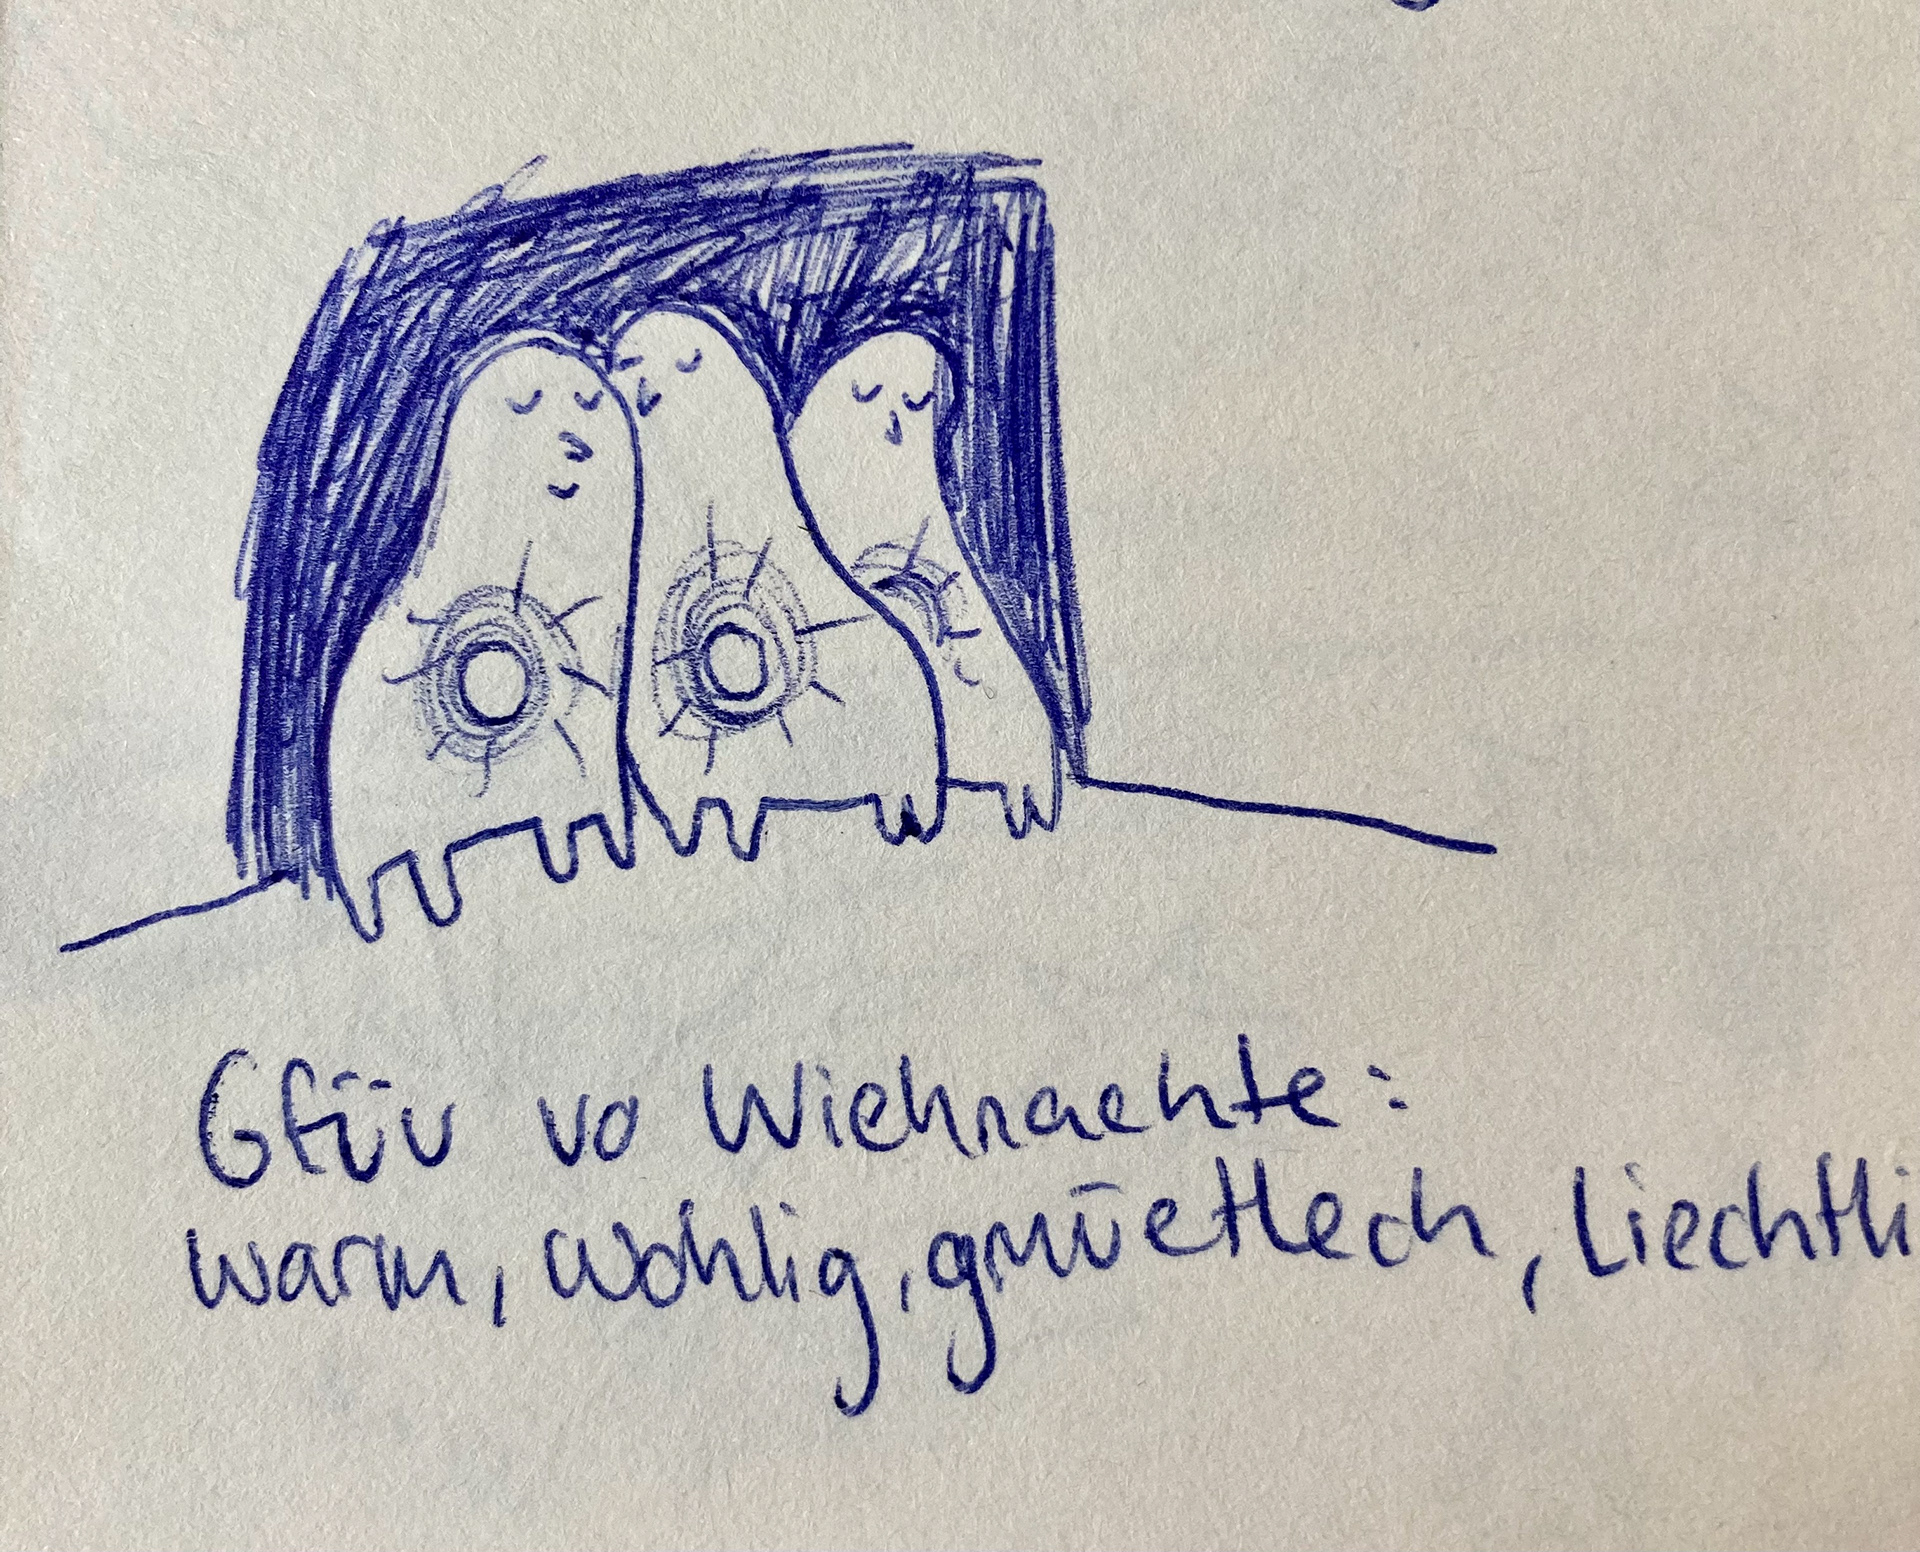 Gfüu vo Wiehnachte:
warm, wohlig, gmüetlech, Liechtli